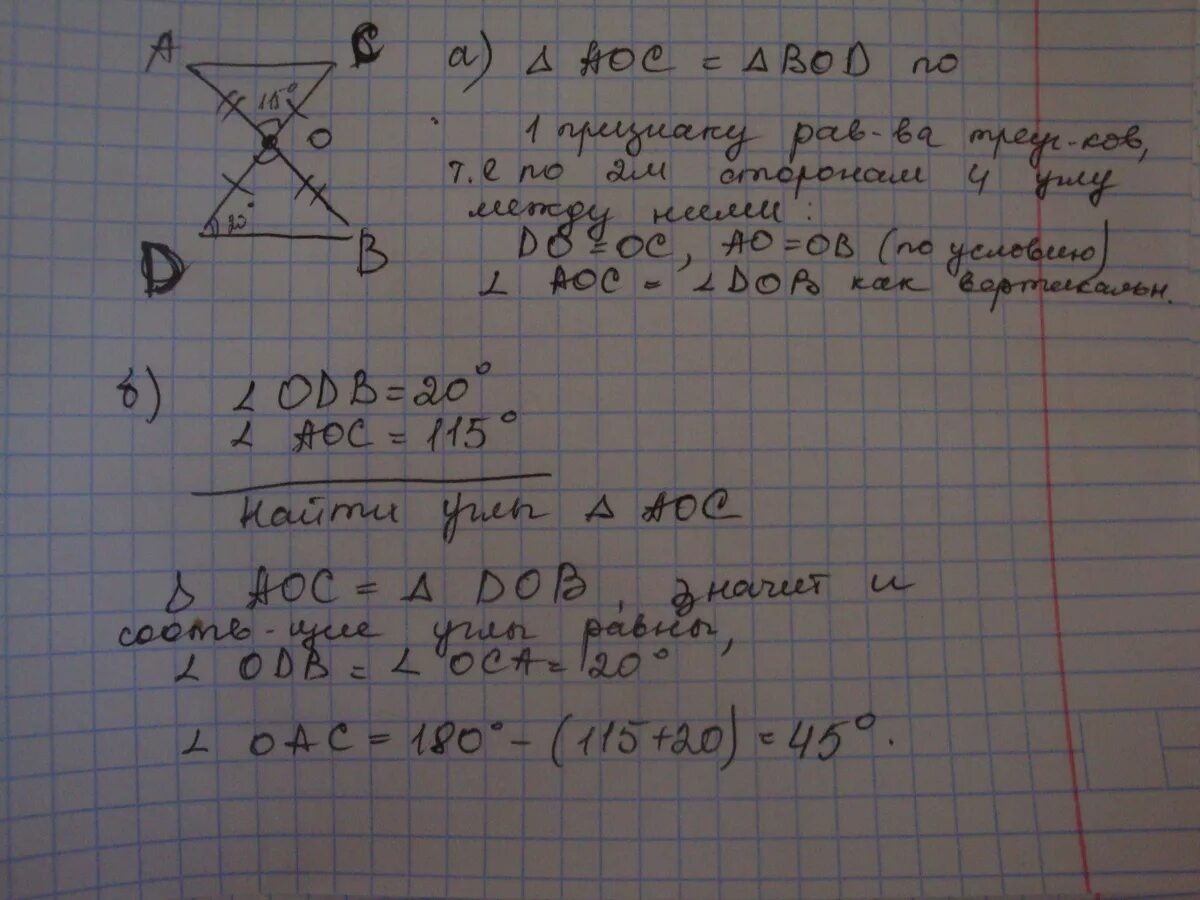 A C а) Δ AOC = Δ BOD по
115° O
1 признаку рав-ва треуг-ков,
т.е по 2м сторонам и углу
между ними:
20°
D B DO = OC, AO = OB (по условию)
∠ AOC = ∠ DOB как вертикальн.
б) ∠ ODB = 20°
∠ AOC = 115°
Найти углы Δ AOC
Δ AOC = Δ DOB, значит и
соотв-щие углы равны,
∠ ODB = ∠ OCA = 20°
∠ OAC = 180° - (115+20) = 45°.